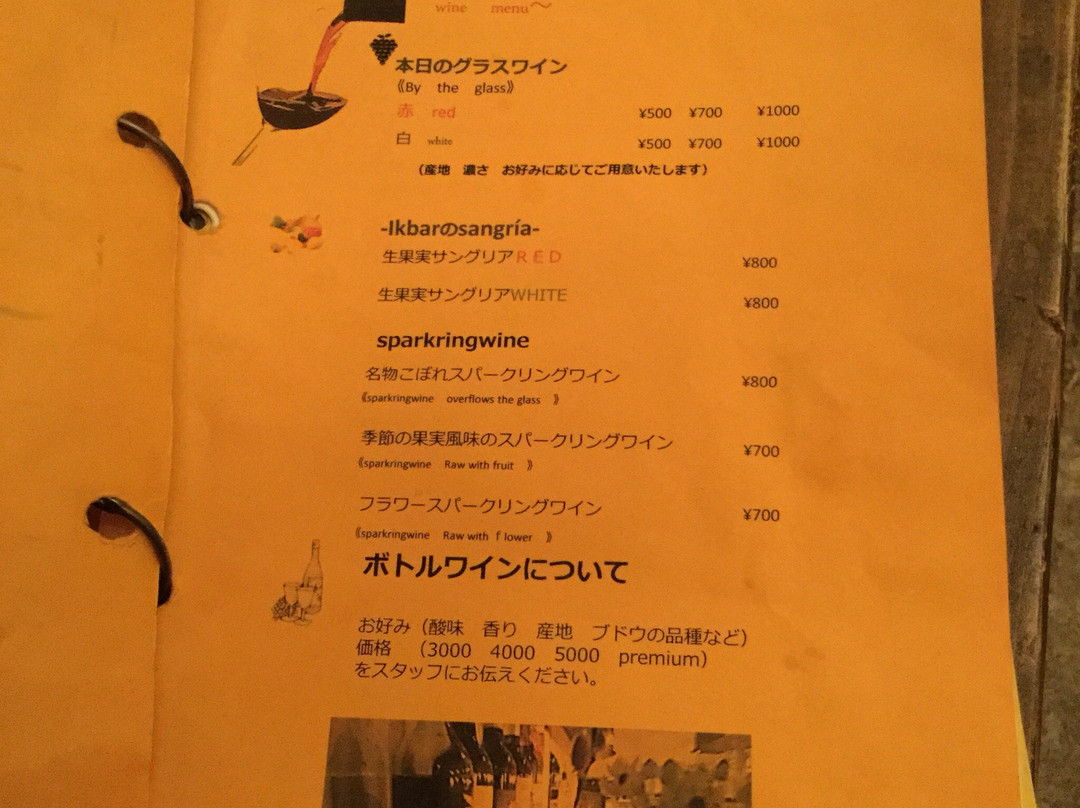 wine menu～
本日のグラスワイン
《By the glass》
赤 red ¥500 ¥700 ¥1000
白 white ¥500 ¥700 ¥1000
（産地 濃さ お好みに応じてご用意いたします）
-Ikbarのsangría-
生果実サングリアＲＥＤ ¥800
生果実サングリアWHITE ¥800
sparkringwine
名物こぼれスパークリングワイン ¥800
《sparkringwine overflows the glass 》
季節の果実風味のスパークリングワイン ¥700
《sparkringwine Raw with fruit 》
フラワースパークリングワイン ¥700
《sparkringwine Raw with ｆlower 》
ボトルワインについて
お好み（酸味 香り 産地 ブドウの品種など）
価格 （3000 4000 5000 premium）
をスタッフにお伝えください。